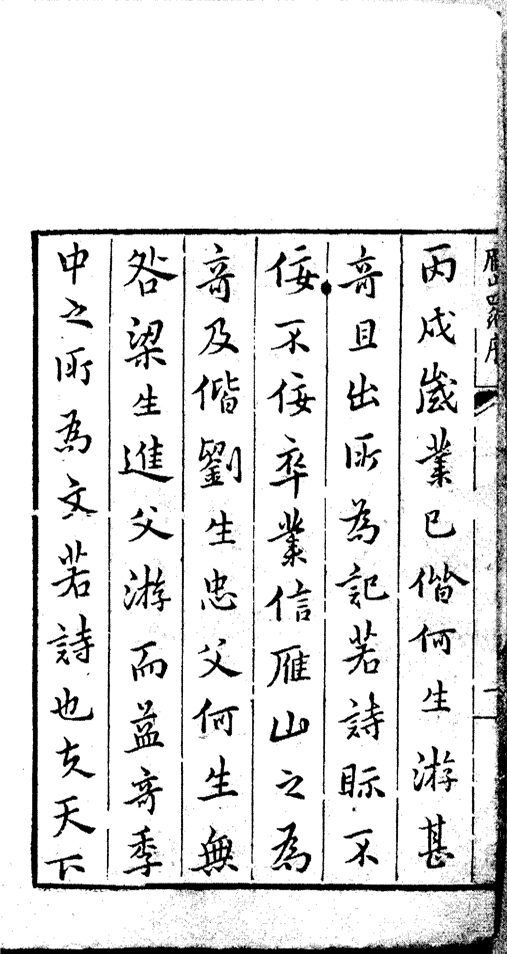 丙戌嵗業已偕何生游甚
竒且出所為記若詩眎不
佞不佞卒業信雁山之為
竒及偕劉生忠父何生無
咎梁生進父游而益竒季
中之所為文若詩也夫天下